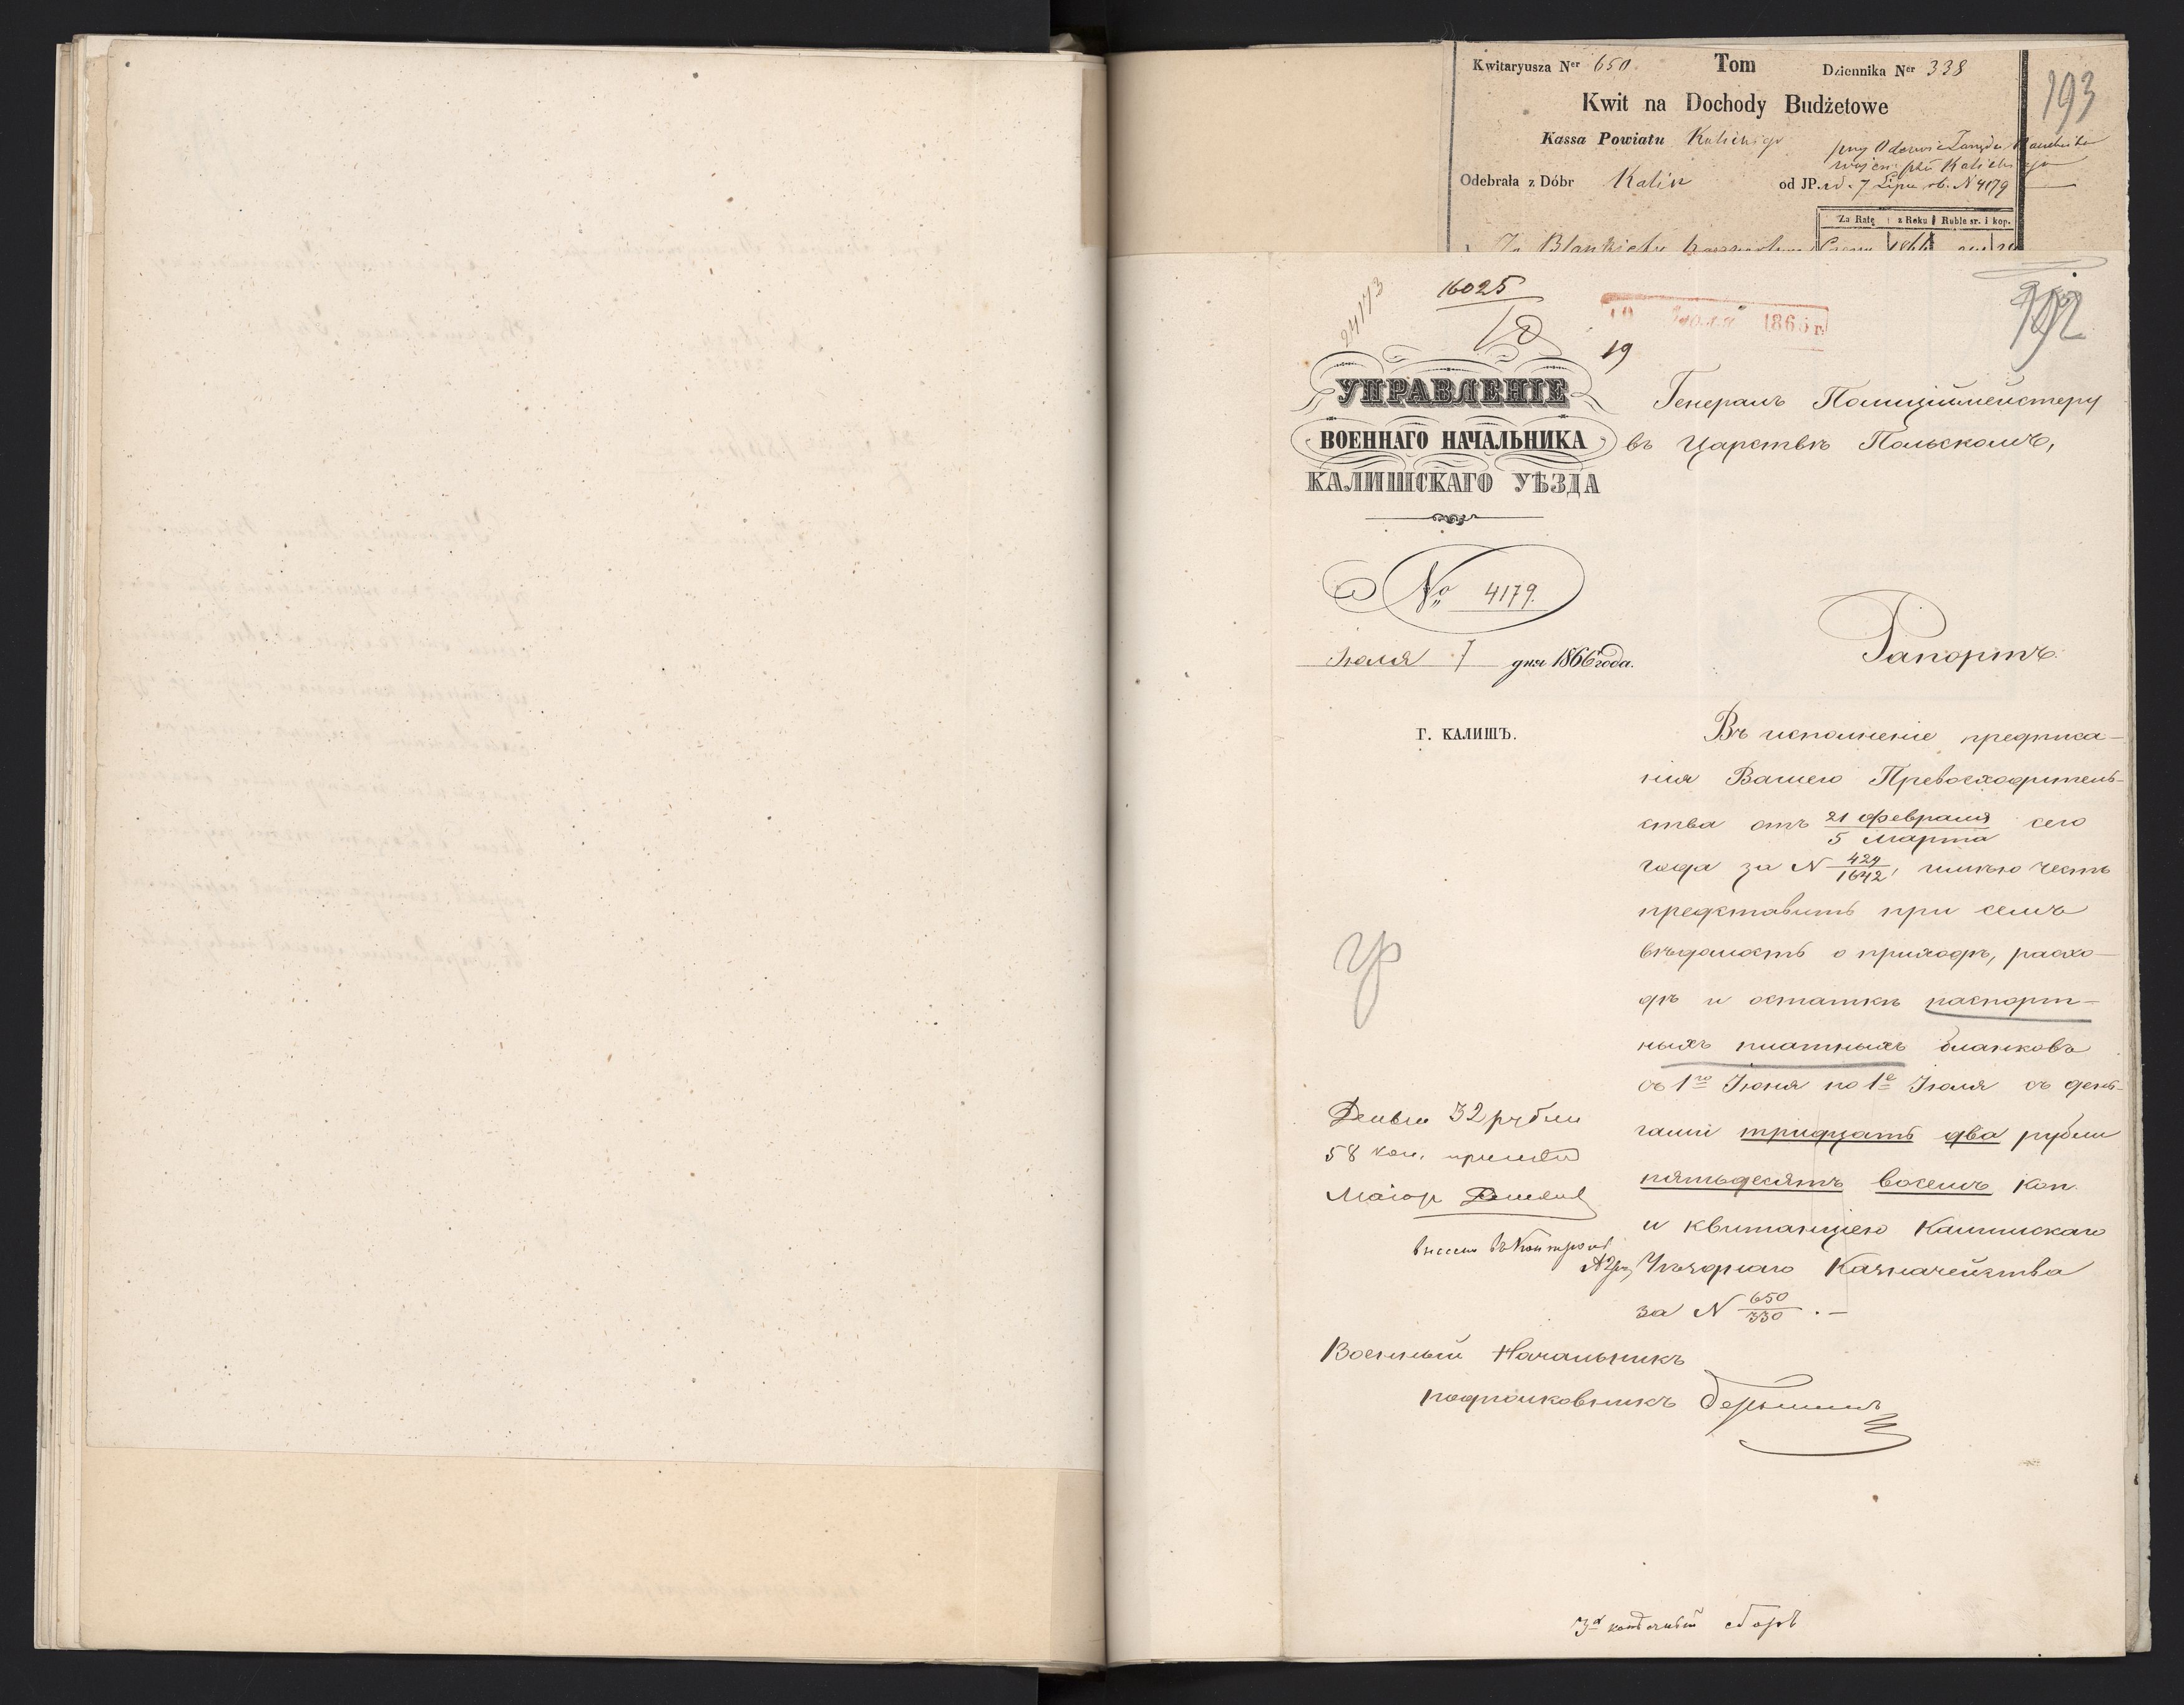 Kwitaryusza Ner 650. Tom Dziennika Ner 338
193
Kwit na Dochody Budżetowe
Kassa Powiatu Kaliskiego
Odebrała z Dóbr Kalisz od JP. z d. 7 Lipca rb. N 4179
Za Ratę z Roku Ruble sr. i kop.
Za Blankiety
24173
16025
1866 г.
19
192
УПРАВЛЕНІЕ
ВОЕННАГО НАЧАЛЬНИКА
КАЛИШСКАГО УѢЗДА
№ 4179.
Іюля 7 дня 1866 года.
Г. КАЛИШЪ.
Генералъ Полиціймейстеру
въ Царствѣ Польскомъ,
Рапортъ.
Въ исполненіе предписа-
нія Вашего Превосходитель-
ства отъ 21 Февраля / 5 Марта сего
года за N 429/1642, имѣю честь
представить при семъ
вѣдомость о приходѣ, расхо-
дѣ и остаткѣ паспорт-
ныхъ платныхъ бланковъ
съ 1го Іюня по 1е Іюля съ день-
гами тридцать два рубли
пятьдесятъ восемъ коп.
и квитанціею Калишскаго
Уѣзднаго Казначейства
за N 650/330 . —
Деньги 32 рубли
58 коп. принялъ
Маіоръ
Военный Начальникъ
подполковникъ